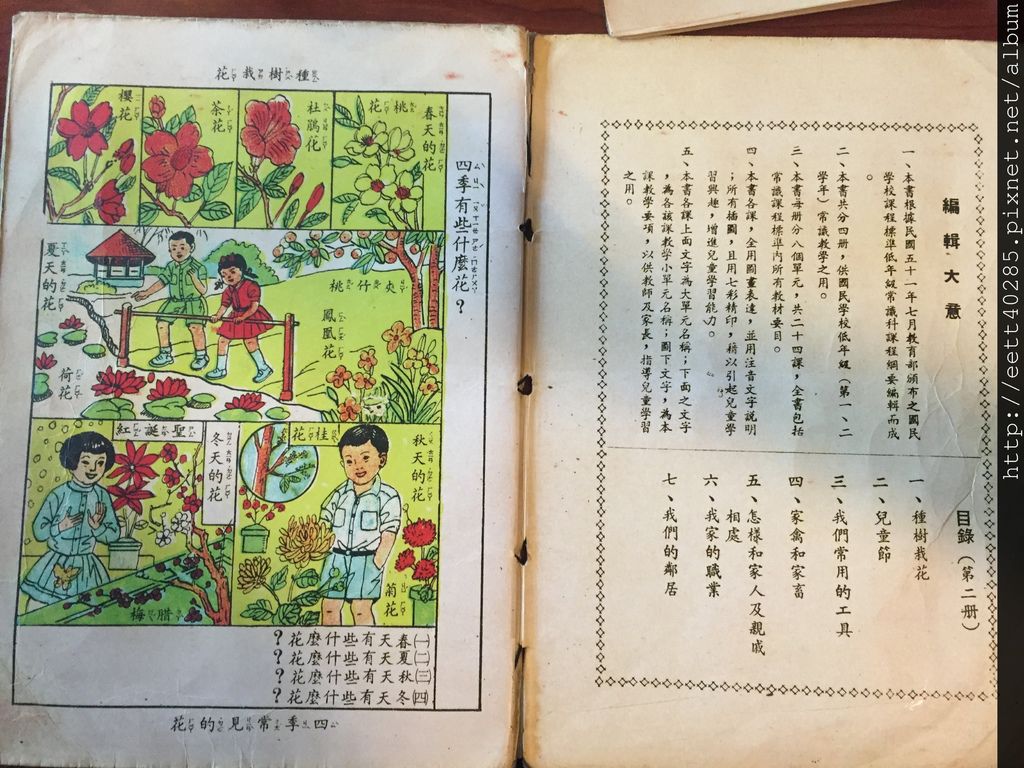 編輯大意
一、本書根據民國五十一年七月教育部頒布之國民
學校課程標準低年級常識科課程綱要編輯而成
。
二、本書共分四冊，供國民學校低年級（第一、二
學年）常識教學之用。
三、本書每冊分八個單元，共二十四課，全書包括
常識課程標準內所有教材要目。
四、本書各課，全用圖畫表達，並用注音文字說明
；所有插圖，且用七彩精印，藉以引起兒童學
習興趣，增進兒童學習能力。
五、本書各課上面文字為大單元名稱；下面之文字
，為各該課教學小單元名稱；圖下文字，為本
課教學要項，以供教師及家長，指導兒童學習
之用。
目錄（第二冊）
一、種樹栽花
二、兒童節
三、我們常用的工具
四、家禽和家畜
五、怎樣和家人及親戚
相處
六、我家的職業
七、我們的鄰居
種樹栽花
四季有些什麼花？
春天的花
桃花
杜鵑花
茶花
櫻花
夾竹桃
鳳凰花
夏天的花
荷花
秋天的花
桂花
菊花
冬天的花
聖誕紅
腊梅
(一)春天有些什麼花？
(二)夏天有些什麼花？
(三)秋天有些什麼花？
(四)冬天有些什麼花？
四季常見的花
http://eett40285.pixnet.net/album